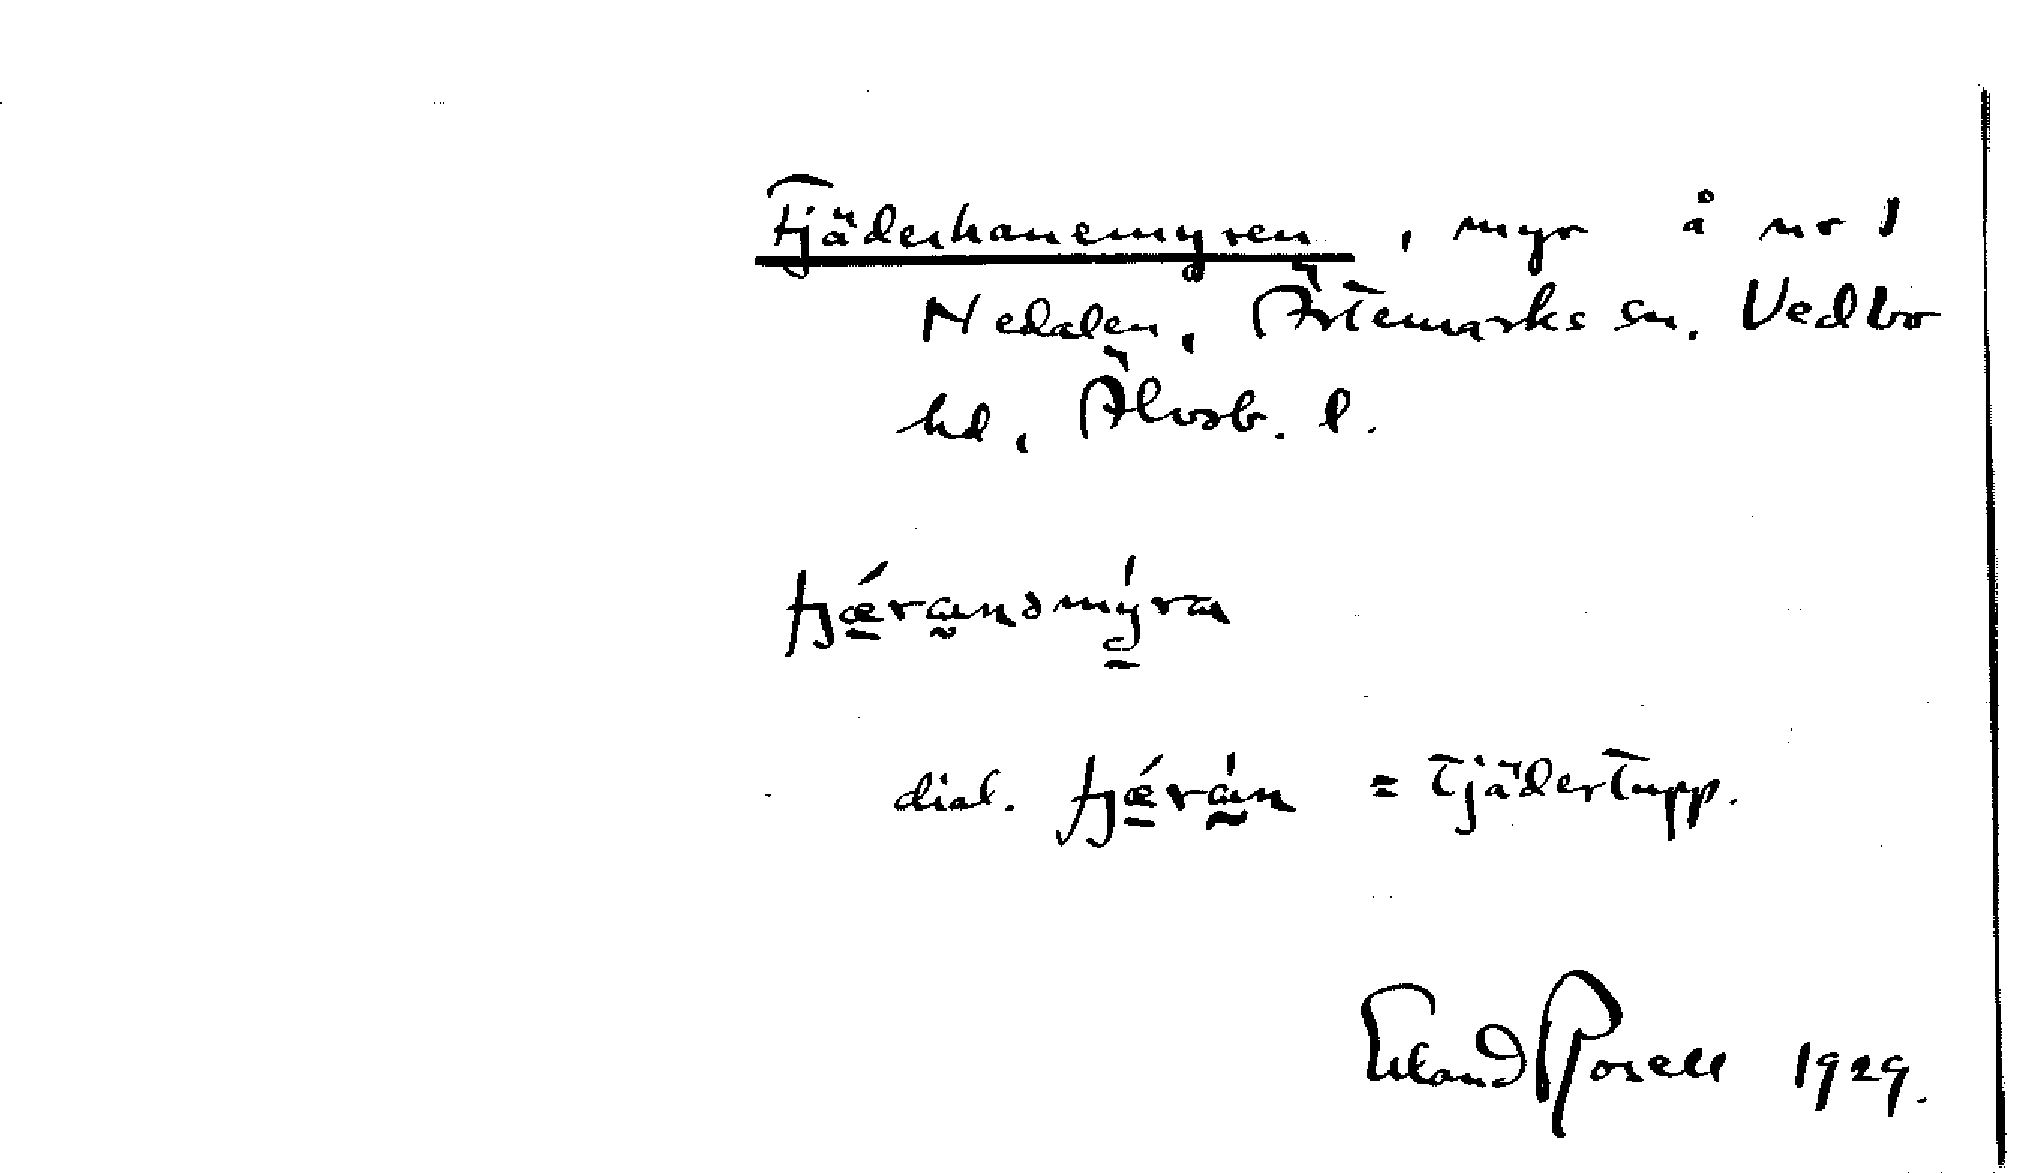 Tjäderhanemyren, myr å nr 1
Nedalen, Ärtemarks sn. Vedbo
hd, Älvsb. l.
tjǽransmýra
dial. tjǽrán = tjädertupp.
Erland Rosell 1929.